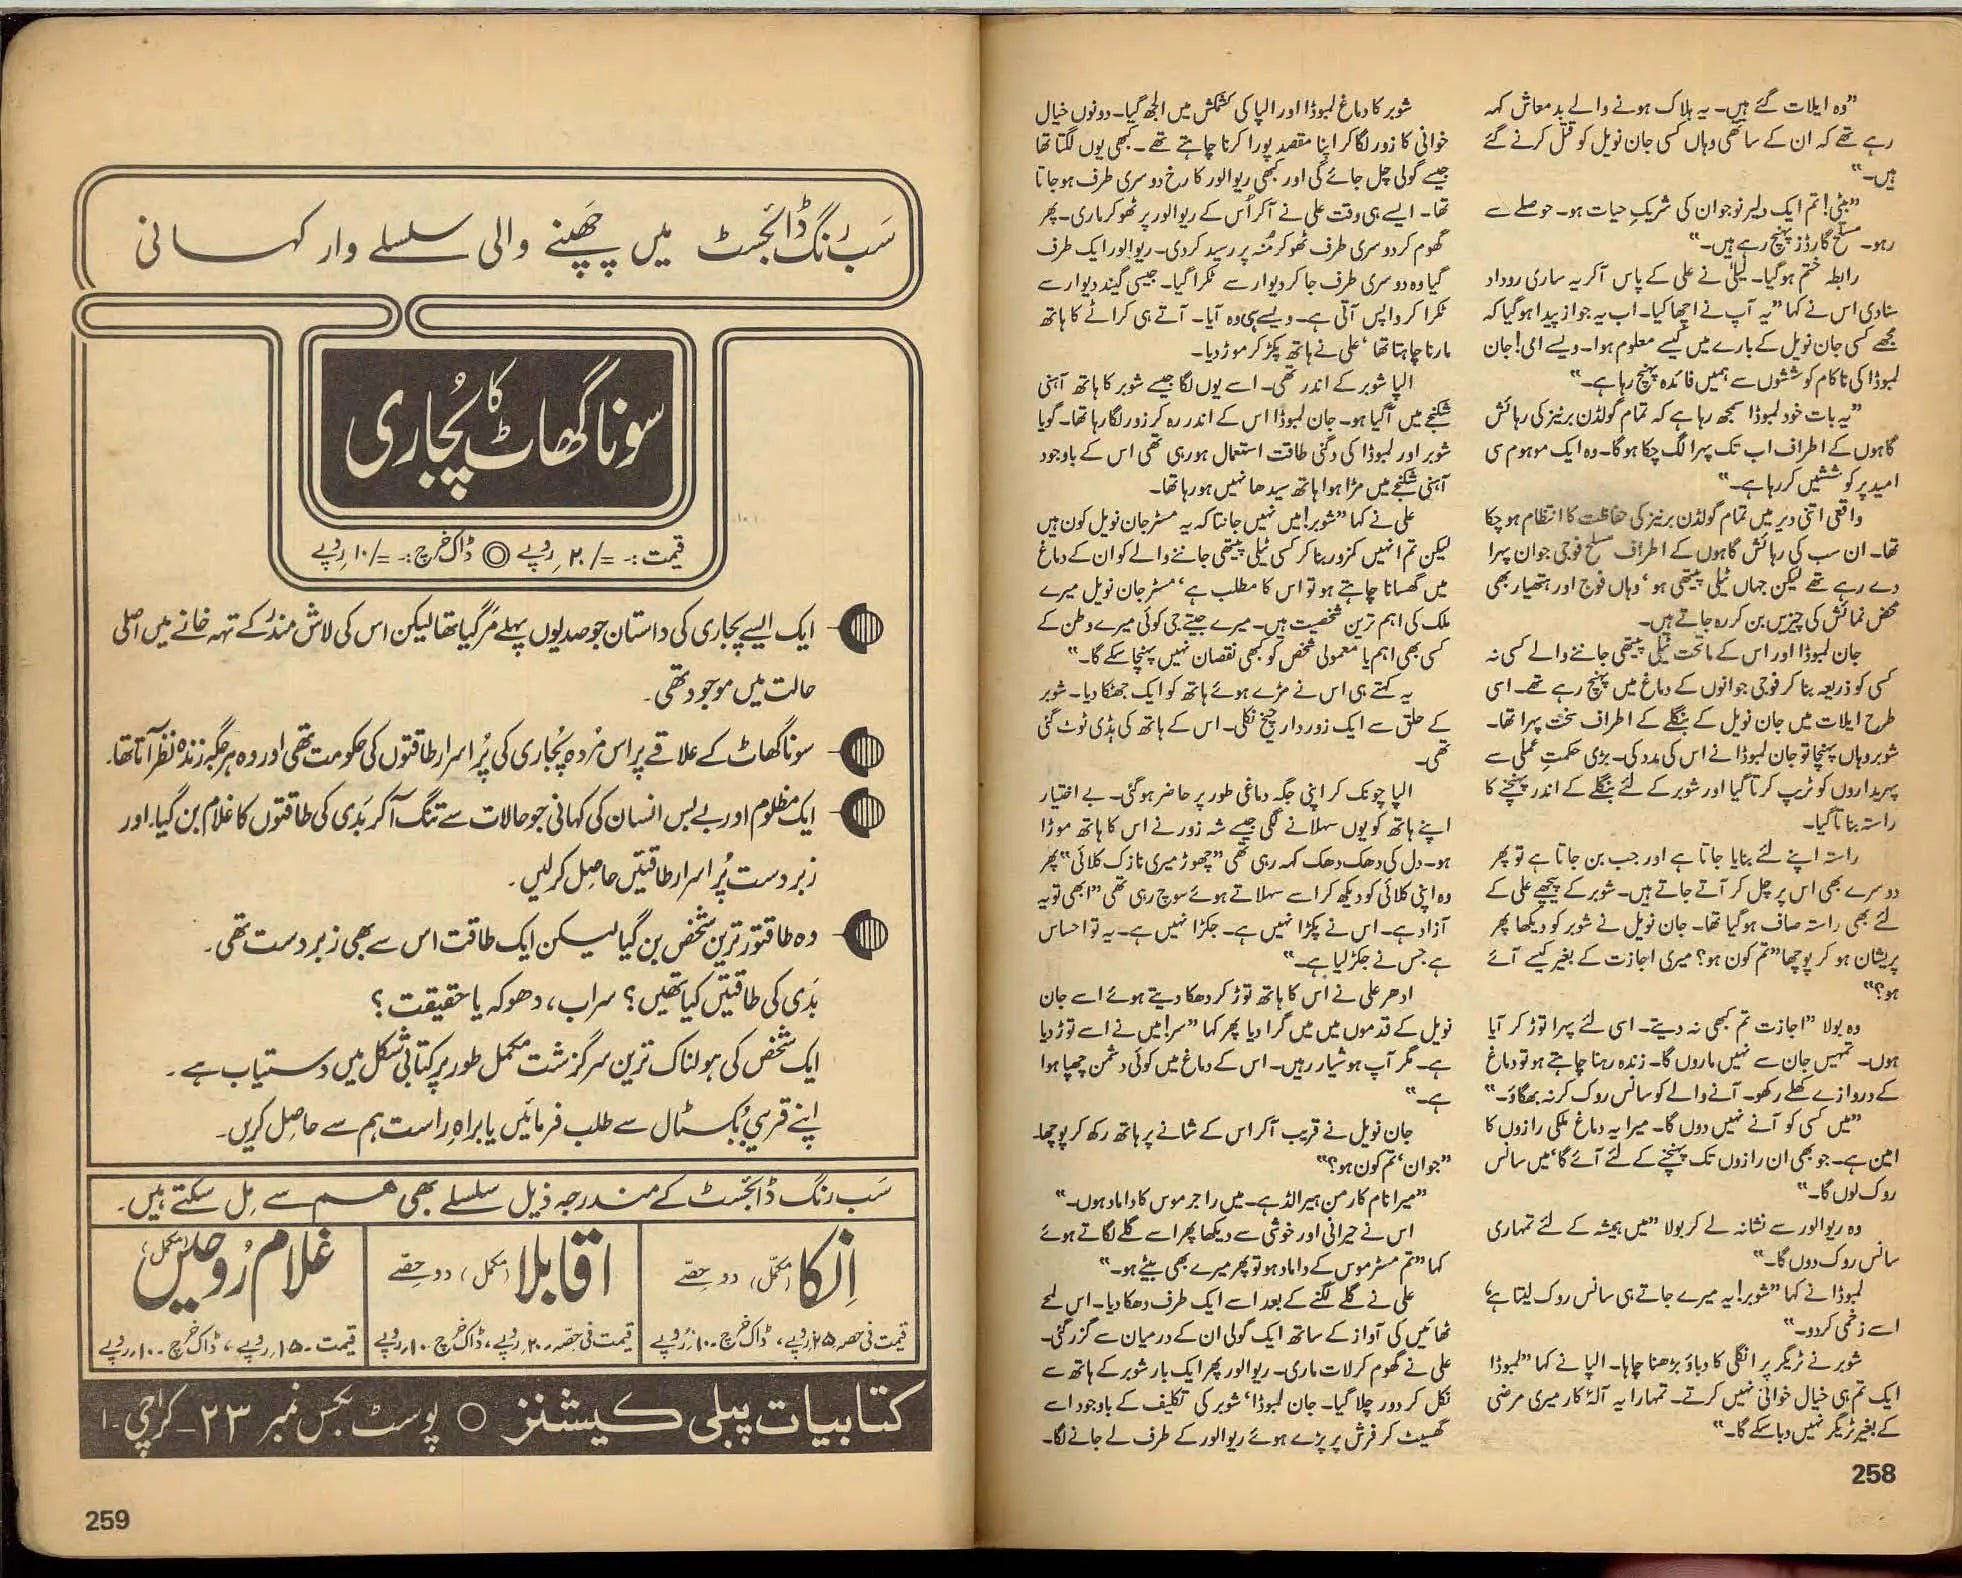 ”وہ ایلات گئے ہیں۔ یہ ہلاک ہونے والے بدمعاش کہہ
رہے تھے کہ ان کے ساتھی وہاں کسی جان نوبل کو قتل کرنے گئے
ہیں۔“
”بیٹی! تم ایک دلیر نوجوان کی شریکِ حیات ہو۔ حوصلے سے
رہو۔ مسلح گارڈز پہنچ رہے ہیں۔“
رابطہ ختم ہوگیا۔ لیلیٰ نے علی کے پاس آکر یہ ساری روداد
سنادی اس نے کہا ”یہ آپ نے اچھا کیا۔ اب یہ جواز پیدا ہوگیا کہ
مجھے کسی جان نوبل کے بارے میں کیسے معلوم ہوا۔ ویسے امی! جان
لمبوڈا کی ناکام کوششوں سے ہمیں فائدہ پہنچ رہا ہے۔“
”یہ بات خود لمبوڈا سمجھ رہا ہے کہ تمام گولڈن برنیز کی رہائش
گاہوں کے اطراف اب تک پہرا لگ چکا ہوگا۔ وہ ایک موہوم سی
امید پر کوششیں کر رہا ہے۔“
واقعی اتنی دیر میں تمام گولڈن برنیز کی حفاظت کا انتظام ہوچکا
تھا۔ ان سب کی رہائش گاہوں کے اطراف مسلح فوجی جوان پہرا
دے رہے تھے لیکن جہاں ٹیلی پیتھی ہو‘ وہاں فوج اور ہتھیار بھی
محض نمائش کی چیزیں بن کر رہ جاتے ہیں۔
جان لمبوڈا اور اس کے ماتحت ٹیلی پیتھی جاننے والے کسی نہ
کسی کو ذریعہ بنا کر فوجی جوانوں کے دماغ میں پہنچ رہے تھے۔ اسی
طرح ایلات میں جان نوبل کے بنگلے کے اطراف سخت پہرا تھا۔
شوبر وہاں پہنچا تو جان لمبوڈا نے اس کی مدد کی۔ بڑی حکمتِ عملی سے
پہریداروں کو ٹریپ کرتا گیا اور شوبر کے لئے بنگلے کے اندر پہنچنے کا
راستہ بناتا گیا۔
راستہ اپنے لئے بنایا جاتا ہے اور جب بن جاتا ہے تو پھر
دوسرے بھی اس پر چل کر آتے جاتے ہیں۔ شوبر کے پیچھے علی کے
لئے بھی راستہ صاف ہوگیا تھا۔ جان نوبل نے شوبر کو دیکھا پھر
پریشان ہو کر پوچھا ”تم کون ہو؟ میری اجازت کے بغیر کیسے آئے
ہو؟“
وہ بولا ”اجازت تم کبھی نہ دیتے۔ اسی لئے پہرا توڑ کر آیا
ہوں۔ تمہیں جان سے نہیں ماروں گا۔ زندہ رہنا چاہتے ہو تو دماغ
کے دروازے کھلے رکھو۔ آنے والے کو سانس روک کر نہ بھگاؤ۔“
”میں کسی کو آنے نہیں دوں گا۔ میرا یہ دماغ ملکی رازوں کا
امین ہے۔ جو بھی ان رازوں تک پہنچنے کے لئے آئے گا‘ میں سانس
روک لوں گا۔“
وہ ریوالور سے نشانہ لے کر بولا ”میں ہمیشہ کے لئے تمہاری
سانس روک دوں گا۔“
لمبوڈا نے کہا ”شوبر! یہ میرے جاتے ہی سانس روک لیتا ہے‘
اسے زخمی کردو۔“
شوبر نے ٹریگر پر انگلی کا دباؤ بڑھنا چاہا۔ الپا نے کہا ”لمبوڈا
ایک تم ہی خیال خوانی نہیں کرتے۔ تمہارا یہ آلۂ کار میری مرضی
کے بغیر ٹریگر نہیں دباسکے گا۔“
258
شوبر کا دماغ لمبوڈا اور الپا کی کشمکش میں الجھ گیا۔ دونوں خیال
خوانی کا زور لگا کر اپنا مقصد پورا کرنا چاہتے تھے۔ کبھی یوں لگتا تھا
جیسے گولی چل جائے گی اور کبھی ریوالور کا رخ دوسری طرف ہوجاتا
تھا۔ ایسے ہی وقت علی نے آکر اُس کے ریوالور پر ٹھوکر ماری۔ پھر
گھوم کر دوسری طرف ٹھوکر مُنہ پر رسید کردی۔ ریوالور ایک طرف
گیا وہ دوسری طرف جا کر دیوار سے ٹکرا گیا۔ جیسی گیند دیوار سے
ٹکرا کر واپس آتی ہے۔ ویسے ہی وہ آیا۔ آتے ہی کراٹے کا ہاتھ
مارنا چاہتا تھا‘ علی نے ہاتھ پکڑ کر موڑ دیا۔
الپا شوبر کے اندر تھی۔ اسے یوں لگا جیسے شوبر کا ہاتھ آہنی
شکنجے میں آگیا ہو۔ جان لمبوڈا اس کے اندر رہ کر زور لگا رہا تھا۔ گویا
شوبر اور لمبوڈا کی دگنی طاقت استعمال ہورہی تھی اس کے باوجود
آہنی شکنجے میں مڑا ہوا ہاتھ سیدھا نہیں ہورہا تھا۔
علی نے کہا ”شوبر! میں نہیں جانتا کہ یہ مسٹر جان نوبل کون ہیں
لیکن تم انہیں کمزور بنا کر کسی ٹیلی پیتھی جاننے والے کو ان کے دماغ
میں گھسانا چاہتے ہو تو اس کا مطلب ہے‘ مسٹر جان نوبل میرے
ملک کی اہم ترین شخصیت ہیں۔ میرے جیتے جی کوئی میرے وطن کے
کسی بھی اہم یا معمولی شخص کو کبھی نقصان نہیں پہنچا سکے گا۔“
یہ کہتے ہی اس نے مڑے ہوئے ہاتھ کو ایک جھٹکا دیا۔ شوبر
کے حلق سے ایک زوردار چیخ نکلی۔ اس کے ہاتھ کی ہڈی ٹوٹ گئی
تھی۔
الپا چونک کر اپنی جگہ دماغی طور پر حاضر ہوگئی۔ بے اختیار
اپنے ہاتھ کو یوں سہلانے لگی جیسے شہ زور نے اس کا ہاتھ موڑا
ہو۔ دل کی دھک دھک کہہ رہی تھی ”چھوڑ میری نازک کلائی“ پھر
وہ اپنی کلائی کو دیکھ کر اسے سہلاتے ہوئے سوچ رہی تھی ”ابھی تو یہ
آزاد ہے۔ اس نے پکڑا نہیں ہے۔ جکڑا نہیں ہے۔ یہ تو احساس
ہے جس نے جکڑ لیا ہے۔“
ادھر علی نے اس کا ہاتھ توڑ کر دھکا دیتے ہوئے اسے جان
نوبل کے قدموں میں میں گرا دیا پھر کہا ”سر! میں نے اسے توڑ دیا
ہے۔ مگر آپ ہوشیار رہیں۔ اس کے دماغ میں کوئی دشمن چھپا ہوا
ہے۔“
جان نوبل نے قریب آکر اس کے شانے پر ہاتھ رکھ کر پوچھا۔
”جوان‘ تم کون ہو؟“
”میرا نام کارمن ہیرالڈ ہے۔ میں راجر موس کا داماد ہوں۔“
اس نے حیرانی اور خوشی سے دیکھا پھر اسے گلے لگاتے ہوئے
کہا ”تم مسٹر موس کے داماد ہو تو پھر میرے بھی بیٹے ہو۔“
علی نے گلے لگنے کے بعد اسے ایک طرف دھکا دیا۔ اس لمحے
ٹھائیں کی آواز کے ساتھ ایک گولی ان کے درمیان سے گزر گئی۔
علی نے گھوم کر لات ماری۔ ریوالور پھر ایک بار شوبر کے ہاتھ سے
نکل کر دور چلا گیا۔ جان لمبوڈا‘ شوبر کی تکلیف کے باوجود اسے
گھسیٹ کر فرش پر پڑے ہوئے ریوالور کے طرف لے جانے لگا۔
سَب رنگ ڈائجسٹ میں چھَپنے والی سلسلے وار کہانی
سونا گھاٹ کا پُجاری
قیمت :- =/۲۰ روپے ◎ ڈاک خرچ :- =/۱۰ روپے
ایک ایسے پجاری کی داستان جو صدیوں پہلے مَر گیا تھا لیکن اس کی لاش مندر کے تہہ خانے میں اصلی
حالت میں موجود تھی۔
سونا گھاٹ کے علاقے پر اس مُردہ پُجاری کی پُراسرار طاقتوں کی حکومت تھی اور وہ ہر جگہ زندہ نظر آتا تھا۔
ایک مظلوم اور بے بس انسان کی کہانی جو حالات سے تنگ آکر بَدی کی طاقتوں کا غلام بن گیا۔ اور
زبردست پُراسرار طاقتیں حاصل کرلیں۔
وہ طاقتور ترین شخص بن گیا لیکن ایک طاقت اس سے بھی زبردست تھی۔
بَدی کی طاقتیں کیا تھیں؟ سراب، دھوکہ یا حقیقت؟
ایک شخص کی ہولناک ترین سرگزشت مکمل طور پر کتابی شکل میں دستیاب ہے۔
اپنے قریبی بُکسٹال سے طلب فرمائیں یا براہِ راست ہم سے حاصل کریں۔
سَب رنگ ڈائجسٹ کے مندرجہ ذیل سلسلے بھی ہم سے مِل سکتے ہیں۔
اِنکا (مکمّل) دو حصّے
قیمت فی حصہ ۲۵ روپے، ڈاک خرچ ۱۰ روپے
اقابلا (مکمل) دو حصّے
قیمت فی حصّہ ۲۰ روپے، ڈاک خرچ ۱۰ روپے
غلام رُوحیں (مکمل)
قیمت ۱۵ روپے، ڈاک خرچ ۱۰ روپے
کتابیات پبلی کیشنز ○ پوسٹ بکس نمبر ۲۳ - کراچی - ۱
259